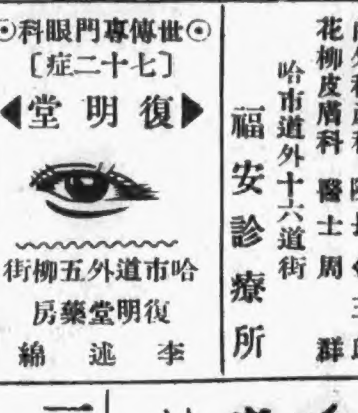 世傳專門眼科
〔七十二症〕
復明堂
哈市道外五柳街
復明堂藥房
李述綿
花柳皮膚科 醫士 周群
哈市道外十六道街
福安診療所